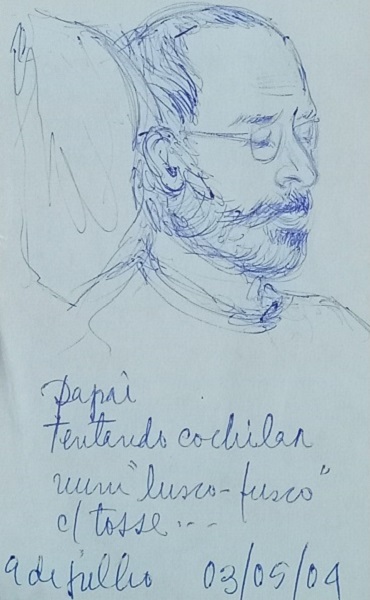 Papai
tentando cochilar
num "lusco-fusco"
c/ tosse...
9 de julho 03/05/09